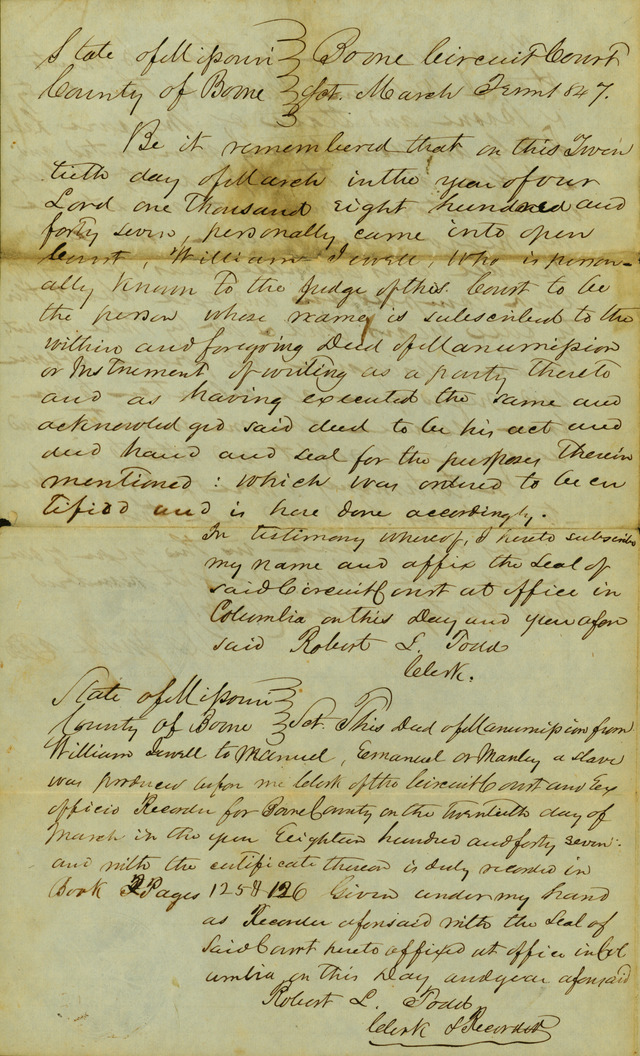 State of Missouri } Boone Circuit Court
County of Boone } Sct. March Term 1847.
Be it remembered that on this Twen
tieth day of March in the year of our
Lord one thousand eight hundred and
forty seven, personally came into open
Court, William Jewell, who is person-
ally known to the Judge of this Court to be
the person whose name is subscribed to the
within and foregoing Deed of Manumission
or Instrument of writing as a party thereto
and as having executed the same and
acknowledged said deed to be his act and
and hand and seal for the purposes therein
mentioned : which was ordered to be cer
tified and is here done accordingly.
In testimony whereof, I hereto subscribe
my name and affix the seal of
said Circuit Court at office in
Columbia on this Day and year afore
said Robert L. Todd
Clerk.
State of Missouri }
County of Boone } Sct. This Deed of Manumission from
William Jewell to Manuel, Emanuel or Manley a slave
was produced before me Clerk of the Circuit Court and Ex
officio Recorder for Boone County on the twentieth day of
March in the year Eighteen hundred and forty seven.
and with the certificate thereon is duly recorded in
Book Pages 125 & 126 Given under my hand
as Recorder aforesaid with the seal of
said Court hereto affixed at office in Col
umbia on this Day and year aforesaid
Robert L. Todd
Clerk & Recorder